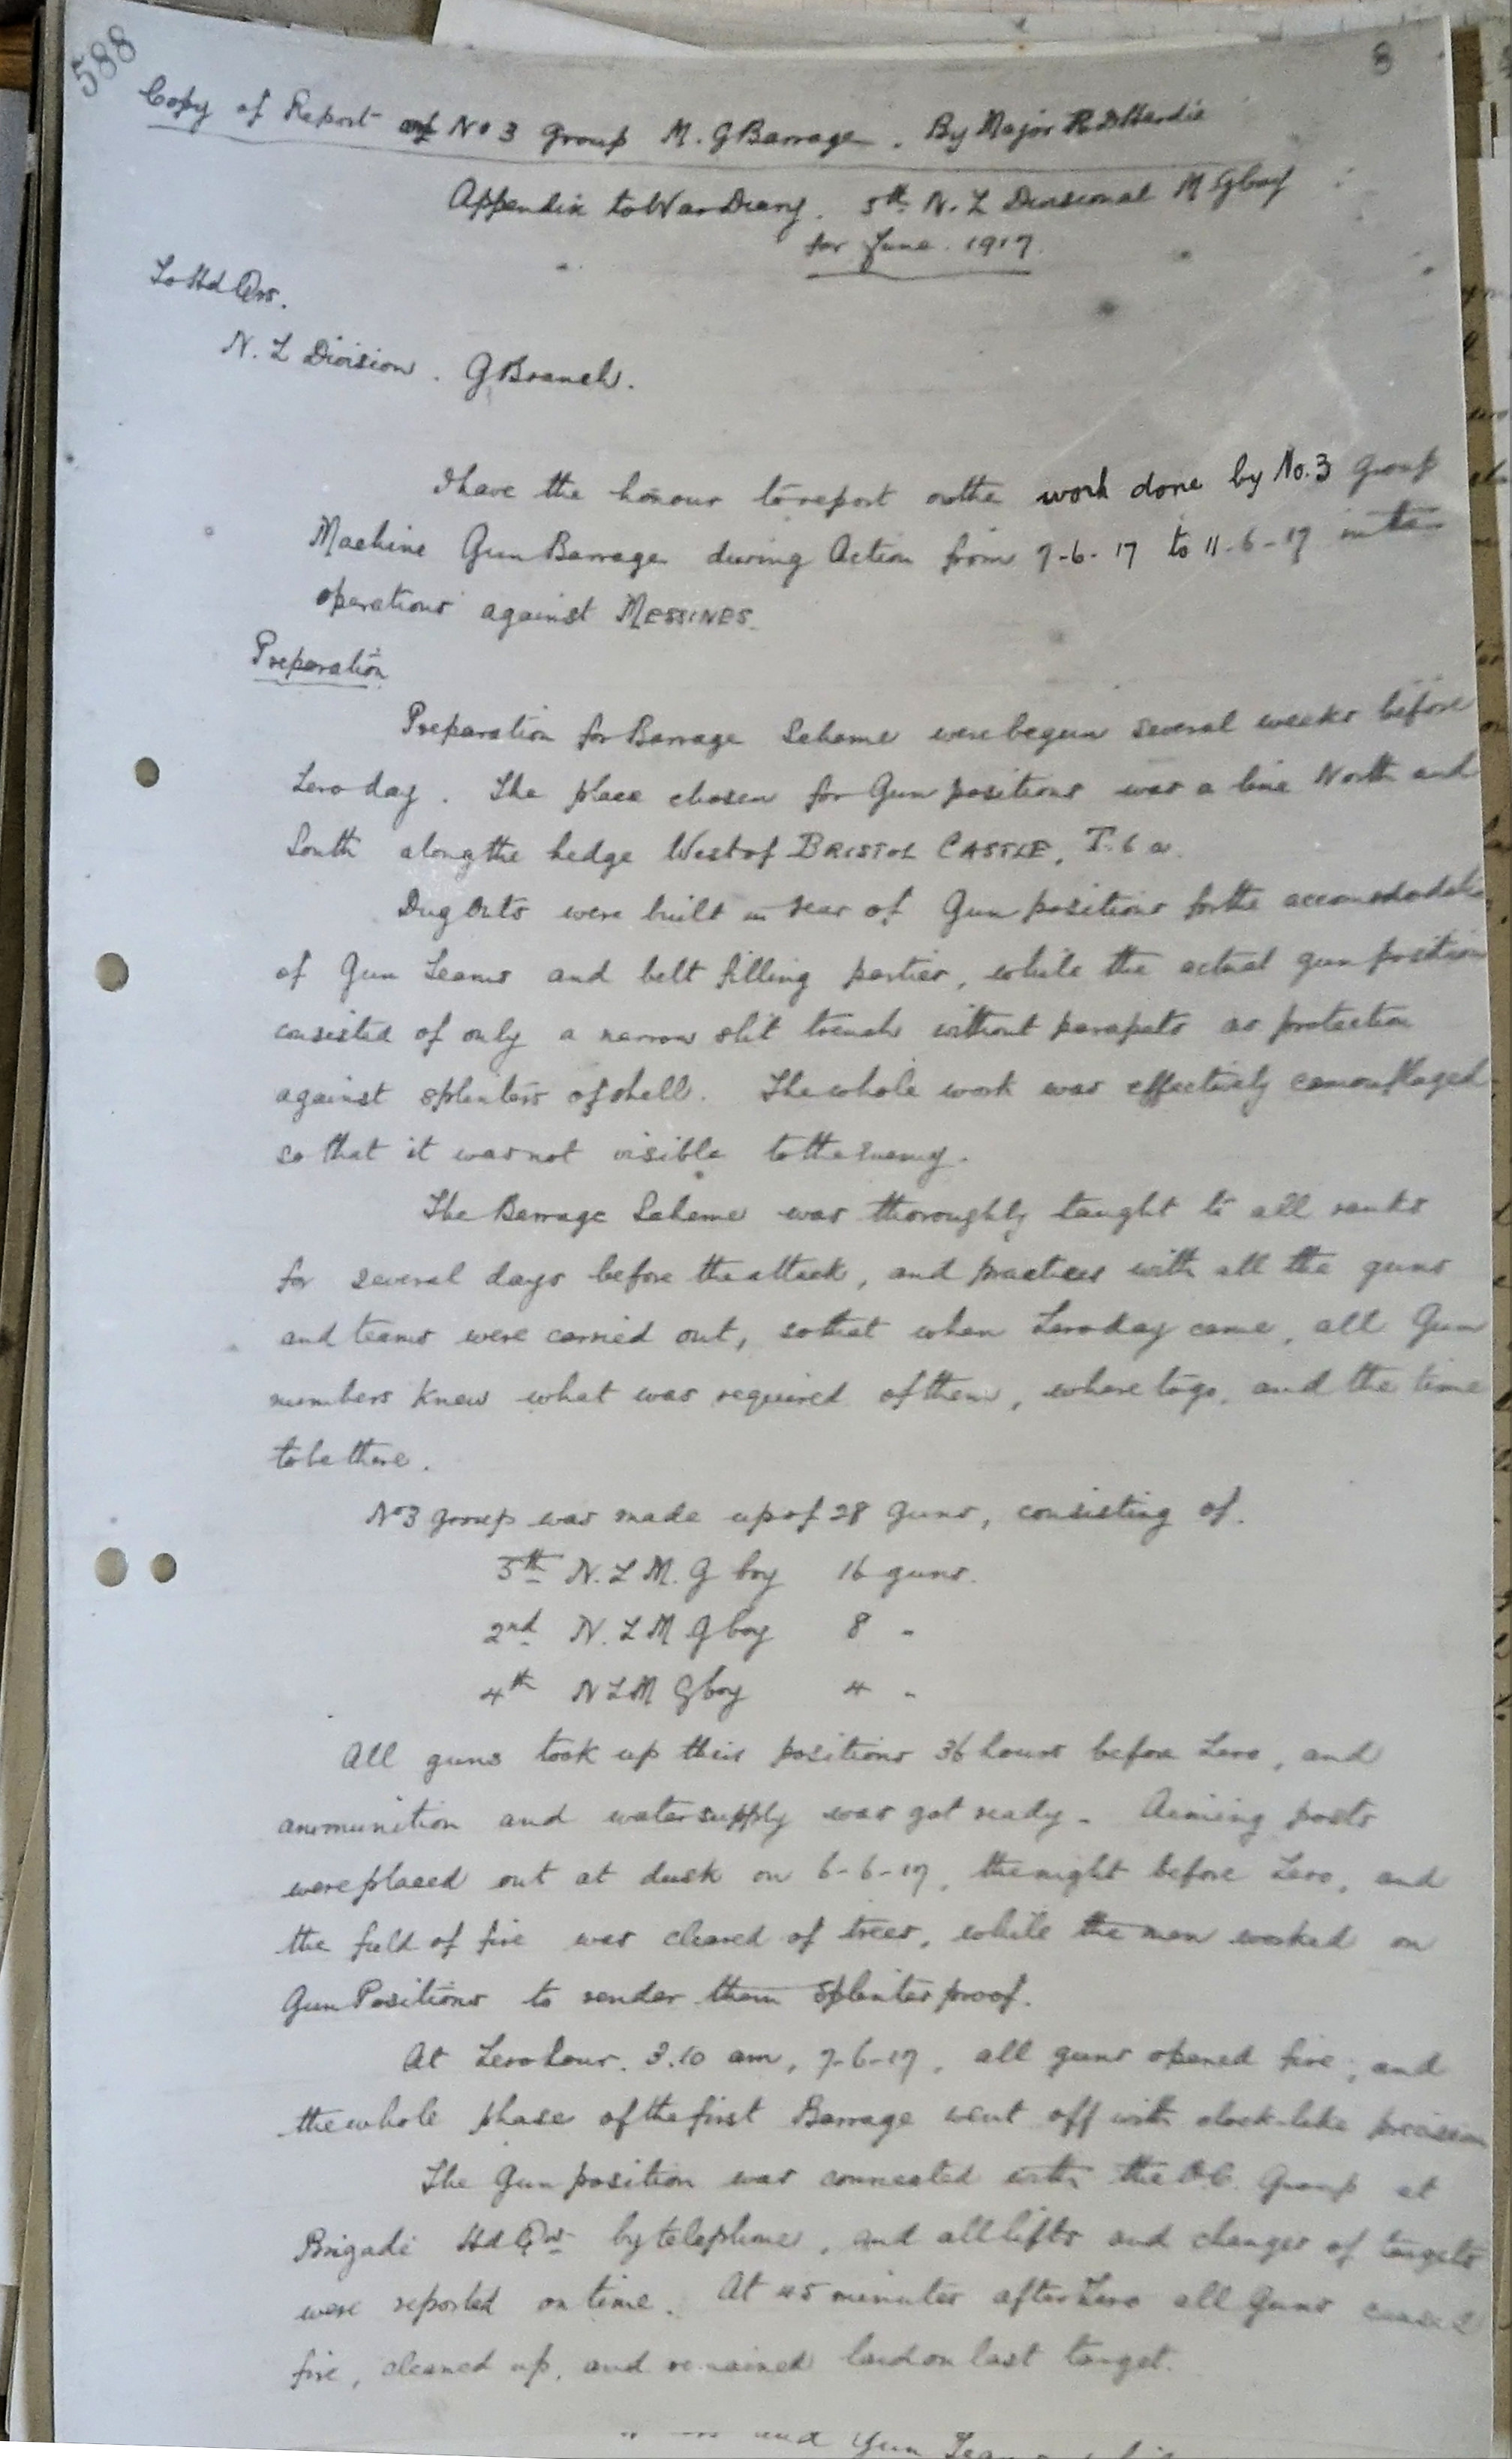 588
8
Copy of Report of No 3 Group M. G Barrage. By Major R D Hardie
Appendix to War Diary. 5th N. Z Divisional M. G Coy
for June. 1917.
To Hd Qrs.
N. Z Division. G Branch.
I have the honour to report on the work done by No. 3 Group
Machine Gun Barrage during Action from 7-6-17 to 11-6-17 in the
operations against MESSINES.
Preparation
Preparation for Barrage Scheme were begun several weeks before
Zero day. The place chosen for Gun positions was a line North and
South along the hedge West of BRISTOL CASTLE, T. 6 a.
Dug Outs were built in rear of Gun positions for the accomodation
of Gun Teams and belt filling parties, while the actual gun position
consisted of only a narrow slit trench without parapets as protection
against splinters of shell. The whole work was effectively camouflaged
so that it was not visible to the Enemy.
The Barrage Scheme was thoroughly taught to all ranks
for several days before the attack, and practices with all the guns
and teams were carried out, so that when Zero day came, all Gun
numbers knew what was required of them, where to go, and the time
to be there.
No 3 Group was made up of 28 Guns, consisting of.
5th N. Z M. G Coy 16 guns.
2nd N. Z M G Coy 8 "
4th N Z M G Coy 4 "
All guns took up their positions 36 hours before Zero, and
ammunition and water supply was got ready. Aiming posts
were placed out at dusk on 6-6-17, the night before Zero, and
the field of fire was cleared of trees, while the men worked on
Gun Positions to render them splinter proof.
At Zero hour. 3.10 am, 7-6-17, all guns opened fire, and
the whole phase of the first Barrage went off with clock-like precision
The Gun position was connected with the O.C. Group at
Brigade Hd Qrs by telephone, and all lifts and changes of targets
were reported on time. At 45 minutes after Zero all Guns ceased
fire, cleaned up, and remained laid on last target.
and Gun Teams